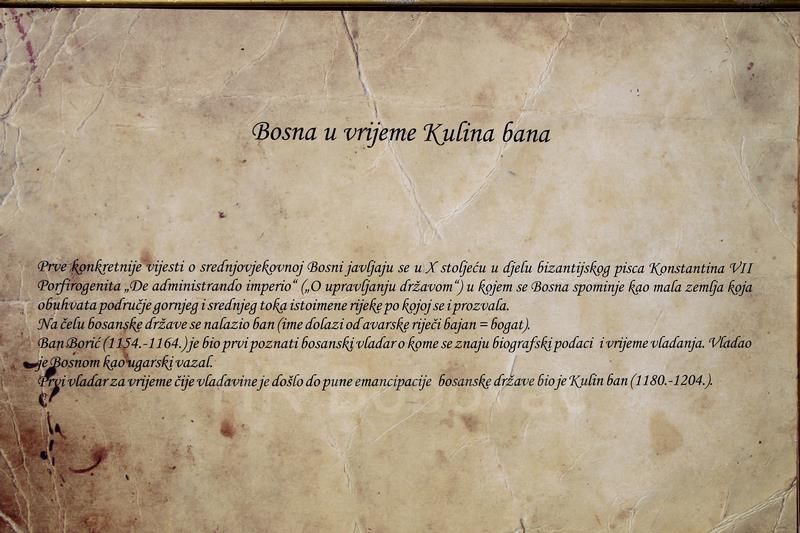 Bosna u vrijeme Kulina bana
Prve konkretnije vijesti o srednjovjekovnoj Bosni javljaju se u X stoljeću u djelu bizantijskog pisca Konstantina VII
Porfirogenita „De administrando imperio“ („O upravljanju državom“) u kojem se Bosna spominje kao mala zemlja koja
obuhvata područje gornjeg i srednjeg toka istoimene rijeke po kojoj se i prozvala.
Na čelu bosanske države se nalazio ban (ime dolazi od avarske riječi bajan = bogat).
Ban Borić (1154.-1164.) je bio prvi poznati bosanski vladar o kome se znaju biografski podaci i vrijeme vladanja. Vladao
je Bosnom kao ugarski vazal.
Prvi vladar za vrijeme čije vladavine je došlo do pune emancipacije bosanske države bio je Kulin ban (1180.-1204.).